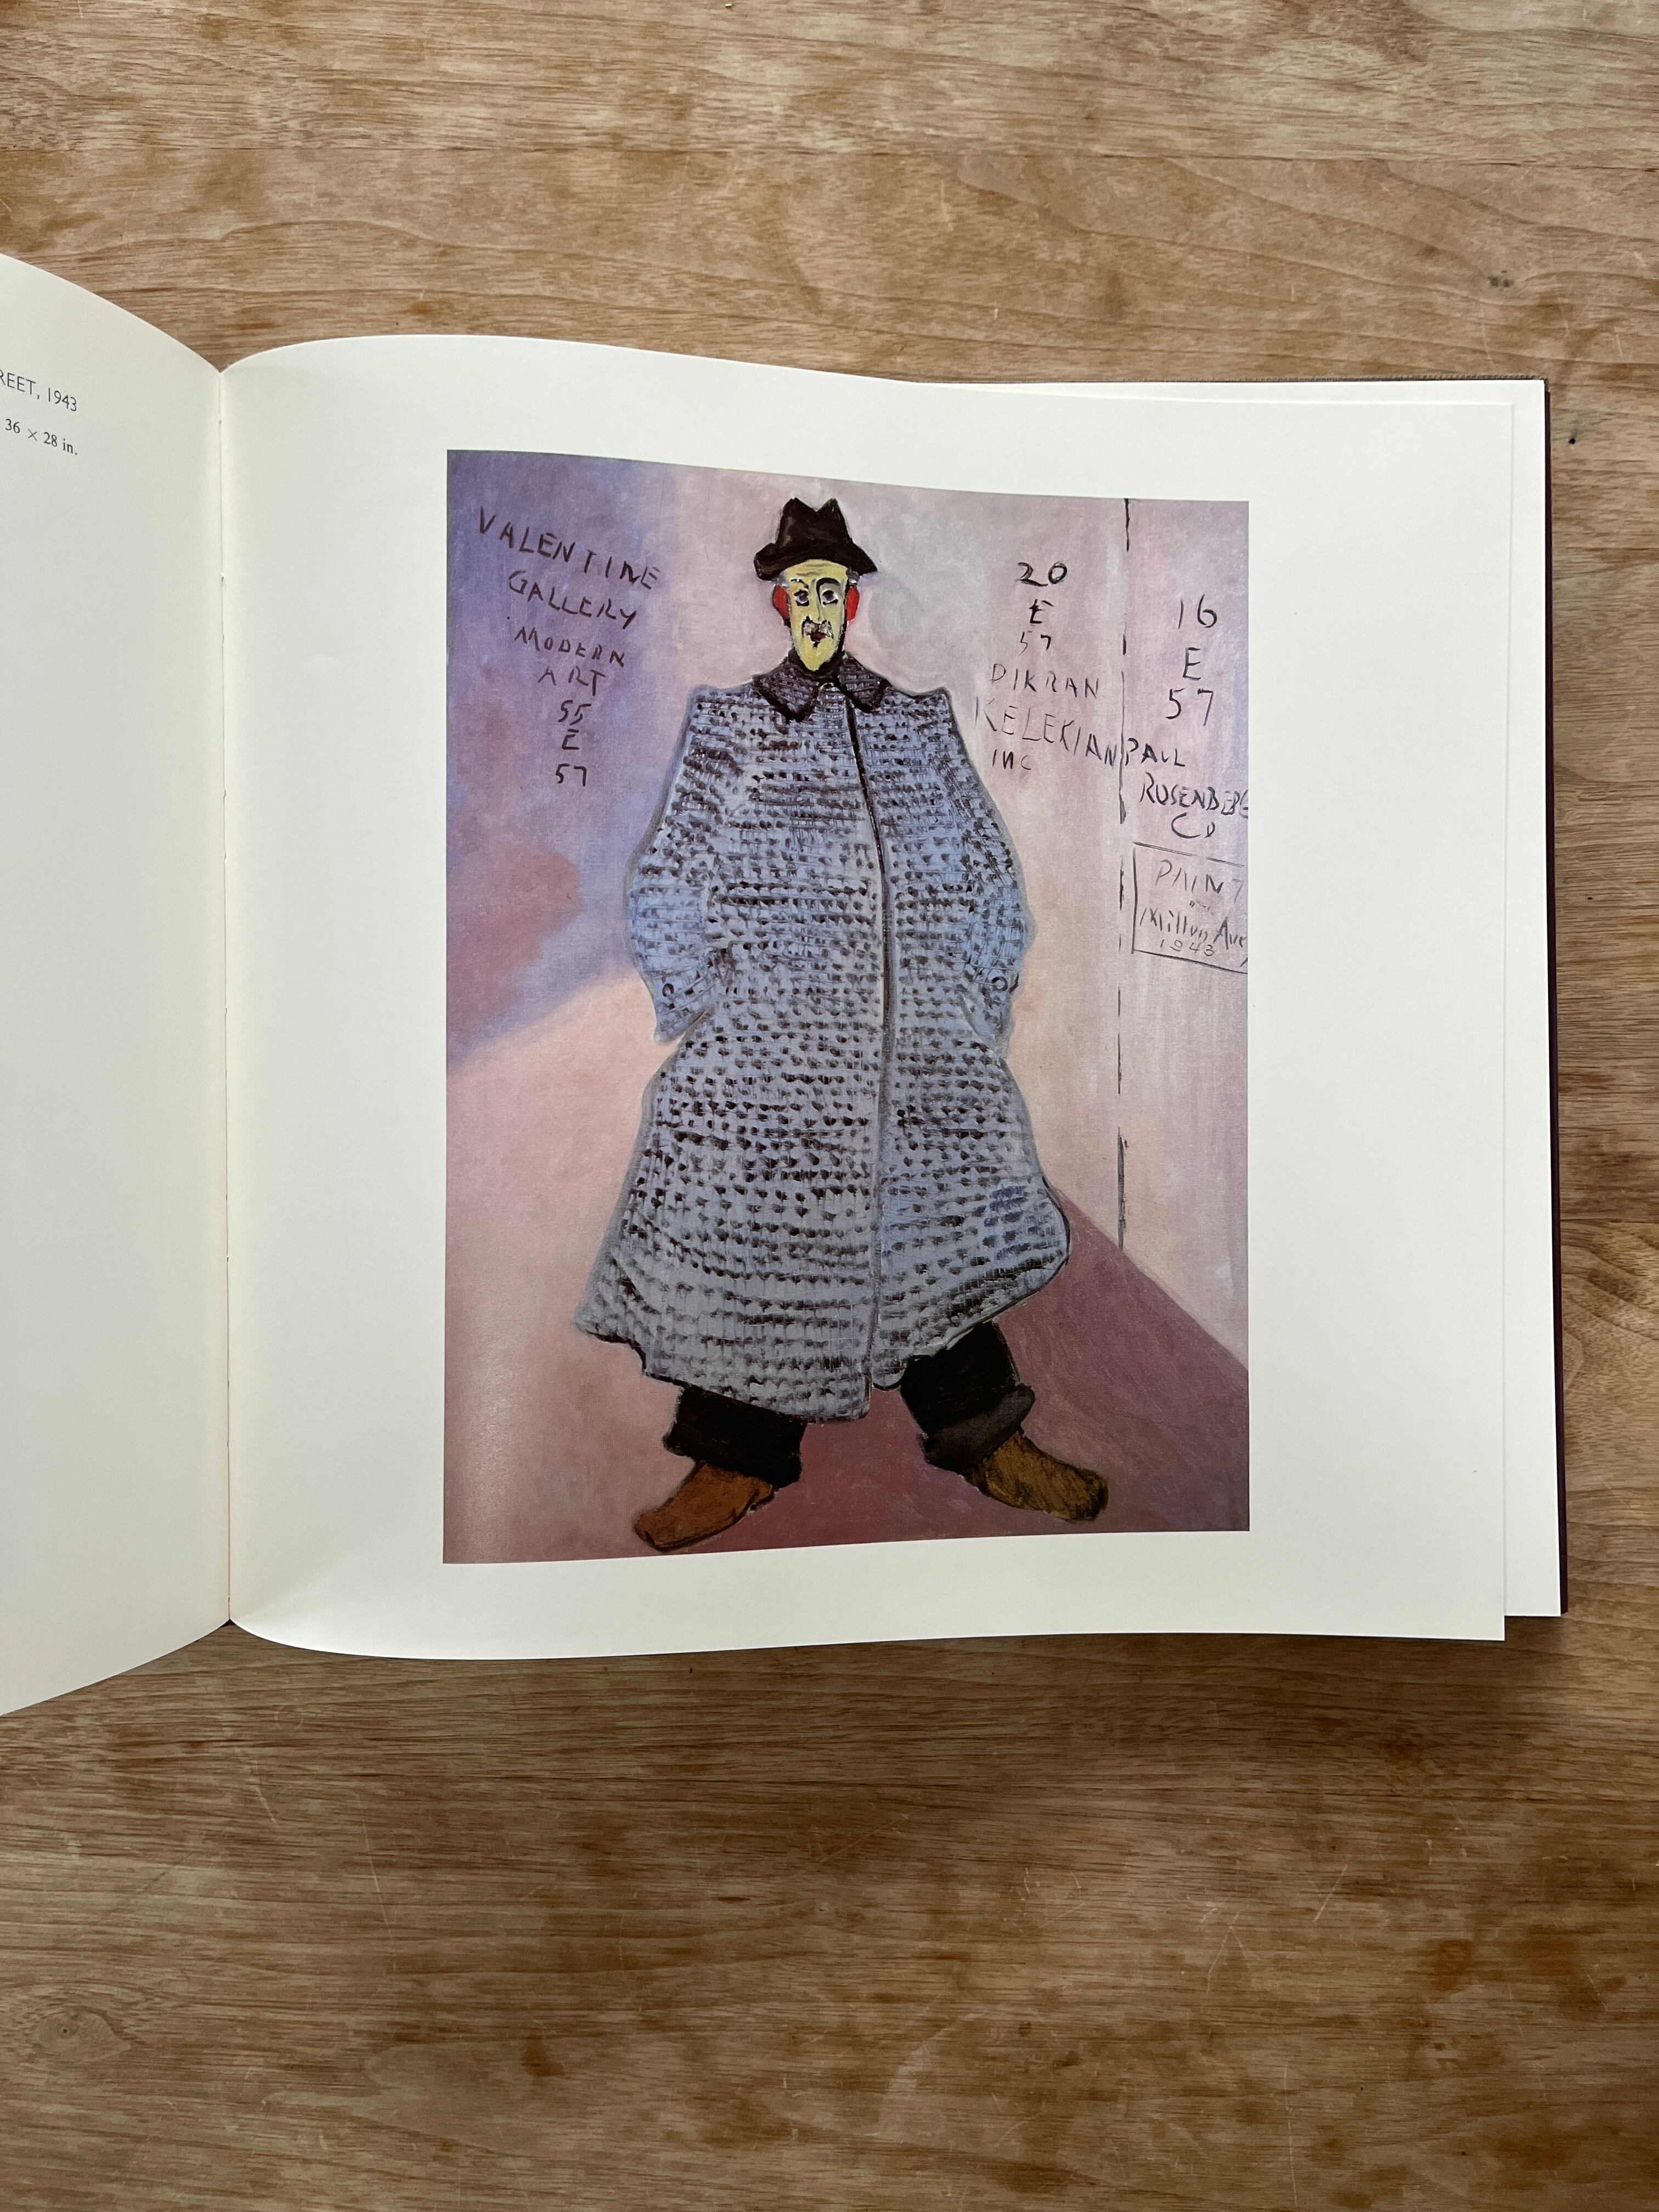 REET, 1943
36 × 28 in.
VALENTINE
GALLERY
MODERN
ART
55
E
57
20
E
57
DIKRAN
KELEKIAN
INC
16
E
57
PAUL
ROSENBERG
CO
PAINT
Milton Avery
1943